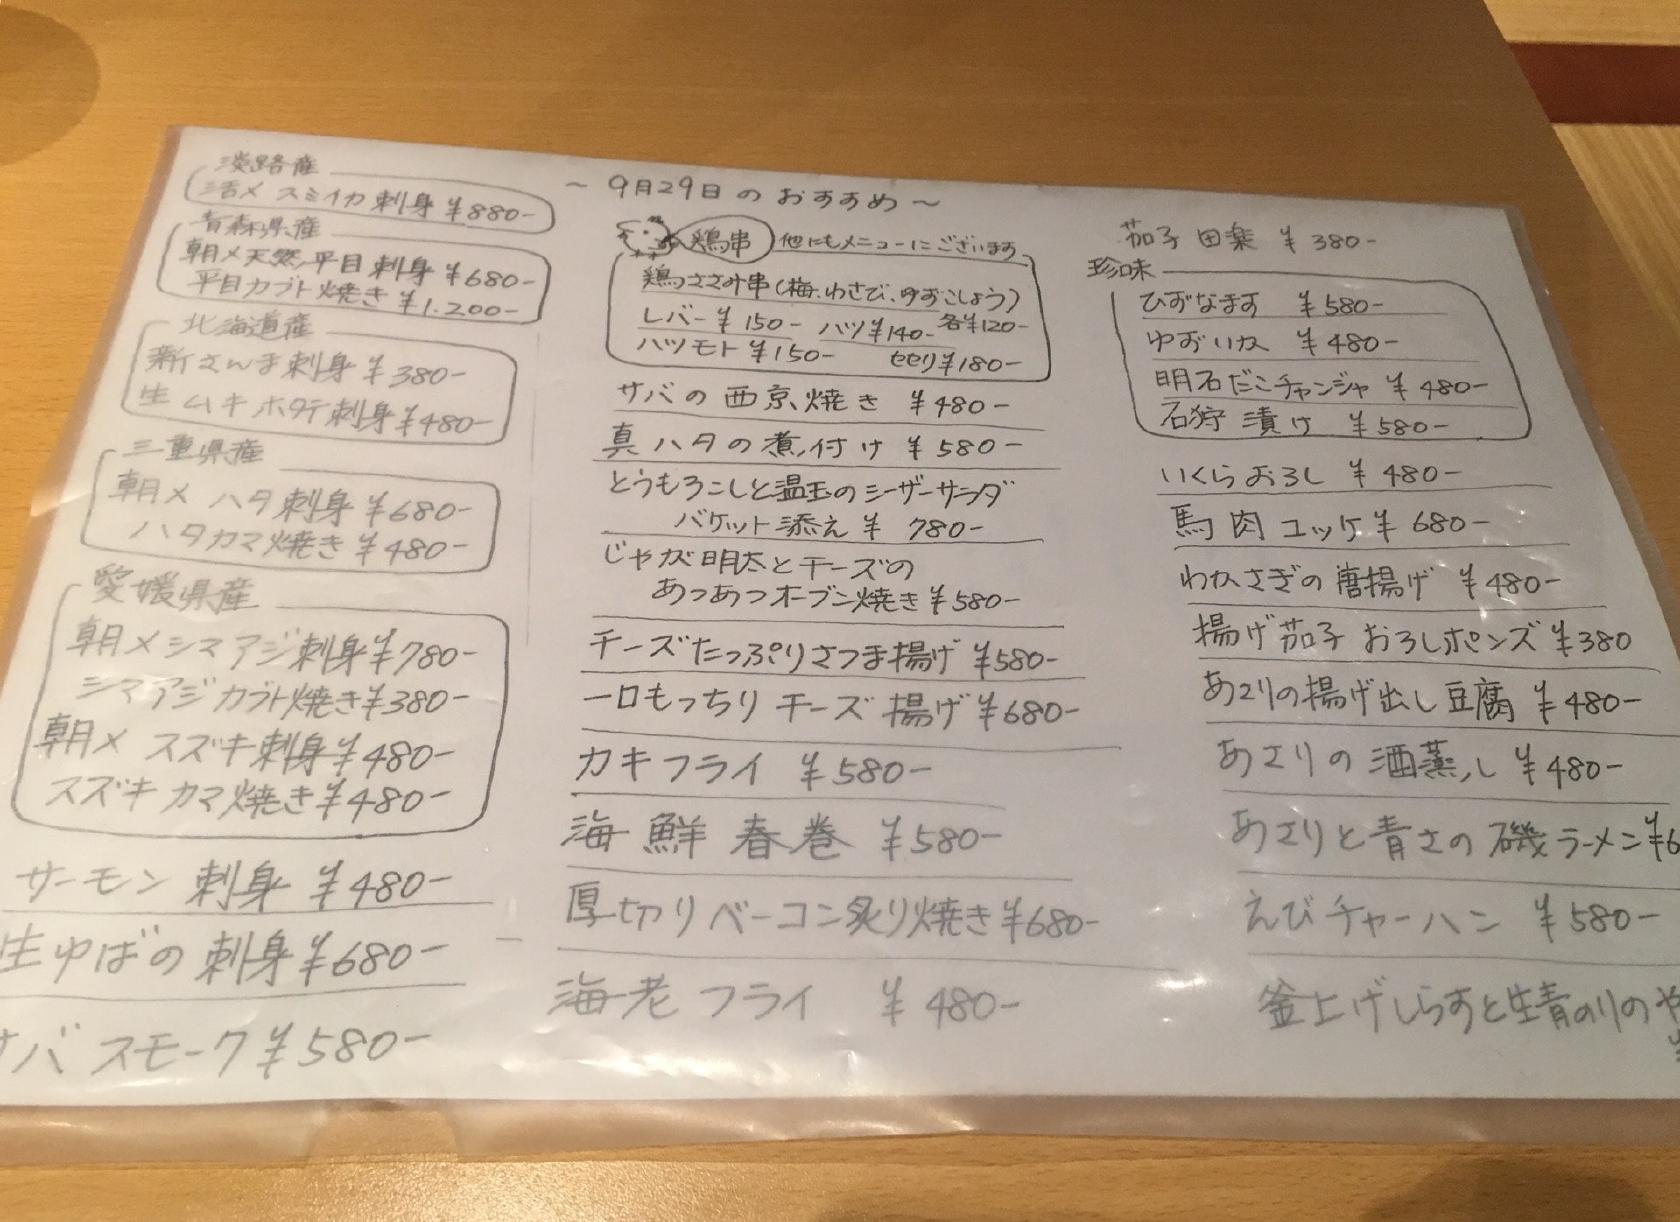 ～9月29日のおすすめ～
淡路産
活〆 スミイカ 刺身 ¥880-
青森県産
朝〆天然平目 刺身 ¥680-
平目カブト焼き ¥1.200-
北海道産
新さんま刺身 ¥380-
生 ムキホタテ刺身¥480-
三重県産
朝〆 ハタ刺身 ¥680-
ハタカマ焼き ¥480-
愛媛県産
朝〆シマアジ刺身¥780-
シマアジカブト焼き¥380-
朝〆 スズキ刺身¥480-
スズキカマ焼き¥480-
サーモン 刺身 ¥480-
生ゆばの 刺身¥680-
サバスモーク¥580-
鶏串 他にもメニューにございます
鶏ササミ串(梅、わさび、ゆずこしょう)
各¥120-
レバー¥150- ハツ¥140-
ハツモト¥150- セセリ¥180-
サバの西京焼き ¥480-
真ハタの煮付け ¥580-
とうもろこしと温玉のシーザーサラダ
バケット添え ¥780-
じゃが明太とチーズの
あつあつオーブン焼き¥580-
チーズたっぷりさつま揚げ ¥580-
一口もっちりチーズ揚げ¥680-
カキフライ ¥580-
海鮮春巻 ¥580-
厚切りベーコン炙り焼き¥680-
海老フライ ¥480-
茄子田楽 ¥380-
珍味
ひずなます ¥580-
ゆずいか ¥480-
明石だこチャンジャ ¥480-
石狩漬け ¥580-
いくらおろし ¥480-
馬肉ユッケ¥680-
わかさぎの唐揚げ ¥480-
揚げ茄子おろしポンズ¥380
あさりの揚げ出し豆腐 ¥480-
あさりの酒蒸し ¥480-
あさりと青さの磯ラーメン¥6
えびチャーハン ¥580-
釜上げしらすと生青のりの